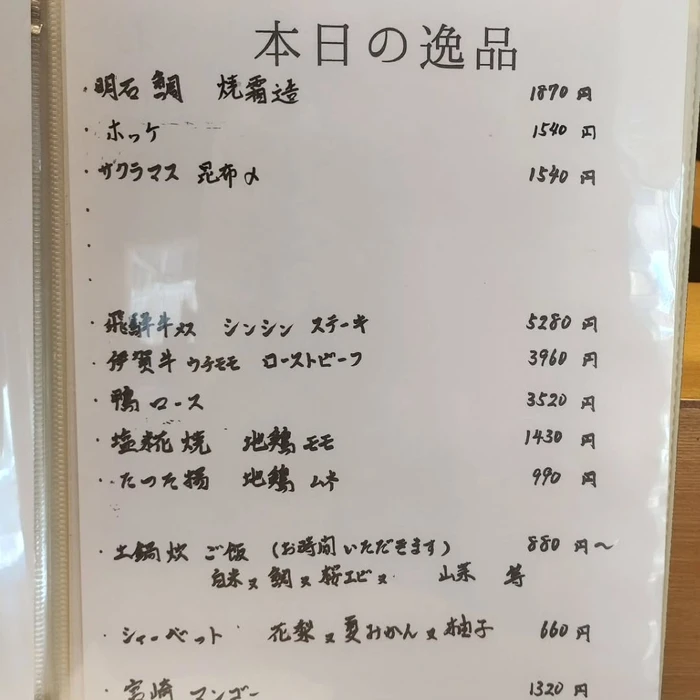 本日の逸品
・明石鯛 焼霜造 1870円
・ホッケ 1540円
・サクラマス 昆布〆 1540円
・
・
・
・飛騨牛メス シンシン ステーキ 5280円
・伊賀牛ウチモモ ローストビーフ 3960円
・鴨ロース 3520円
・塩糀焼 地鶏モモ 1430円
・たつた揚 地鶏ムネ 990円
・土鍋炊ご飯 (お時間いただきます) 880円〜
白米 又 鯛 又 桜エビ 又 山菜
・シャーベット 花梨 又 夏みかん 又 柚子 660円
・宮崎マンゴー 1320円